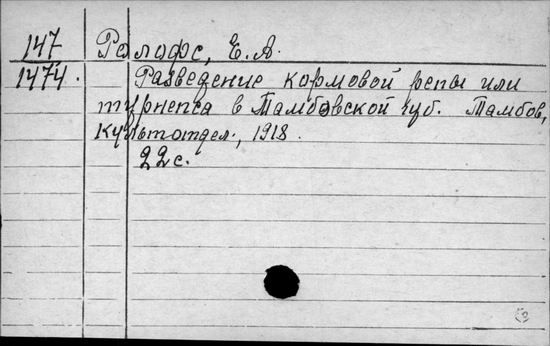 147 Ролофс, Е. А.
1474. Разведение кормовой репы или
турнепса в Тамбовской губ. Тамбов,
Культотдел., 1918.
22 с.